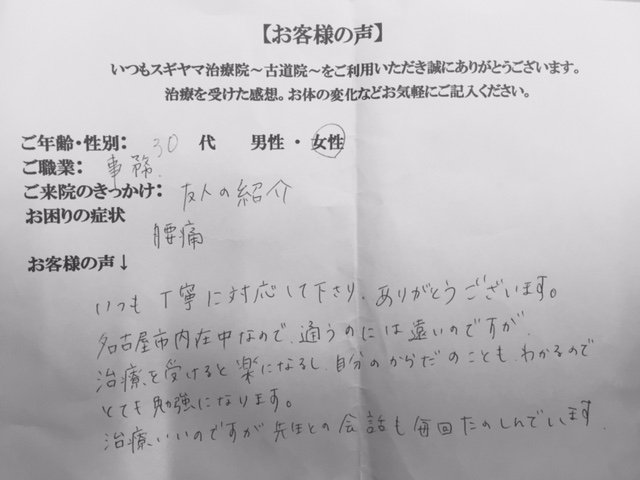 【お客様の声】
いつもスギヤマ治療院～古道院～をご利用いただき誠にありがとうございます。
治療を受けた感想。お体の変化などお気軽にご記入ください。
ご年齢・性別： 30 代 男性 ・ 女性
ご職業： 事務.
ご来院のきっかけ： 友人の紹介
お困りの症状
腰痛
お客様の声↓
いつも丁寧に対応して下さり、ありがとうございます。
名古屋市内在中なので、通うのには遠いのですが、
治療を受けると楽になるし、自分のからだのことも、わかるので
とても勉強になります。
治療、いいのですが先生との会話も毎回たのしんでいます.